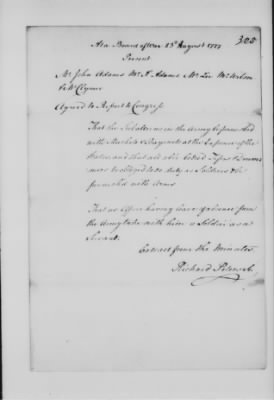 302
At a Board of War 23d August 1777
Present
Mr. John Adams Mr. S. Adams Mr. Lee Mr. Wilson
& Mr Clymer
Agreed to Report to Congress
That the Subalterns in the Army be furnished
with Muskets & Bayonets at the Expence of the
States and that all able bodied Fifers & Drum-
mers be obliged to do duty as Soldiers & be
furnished with Arms
That no Officer having leave of absence from
the Army take with him a Soldier as a
Servant.
Extract from the Minutes
Richard Peters